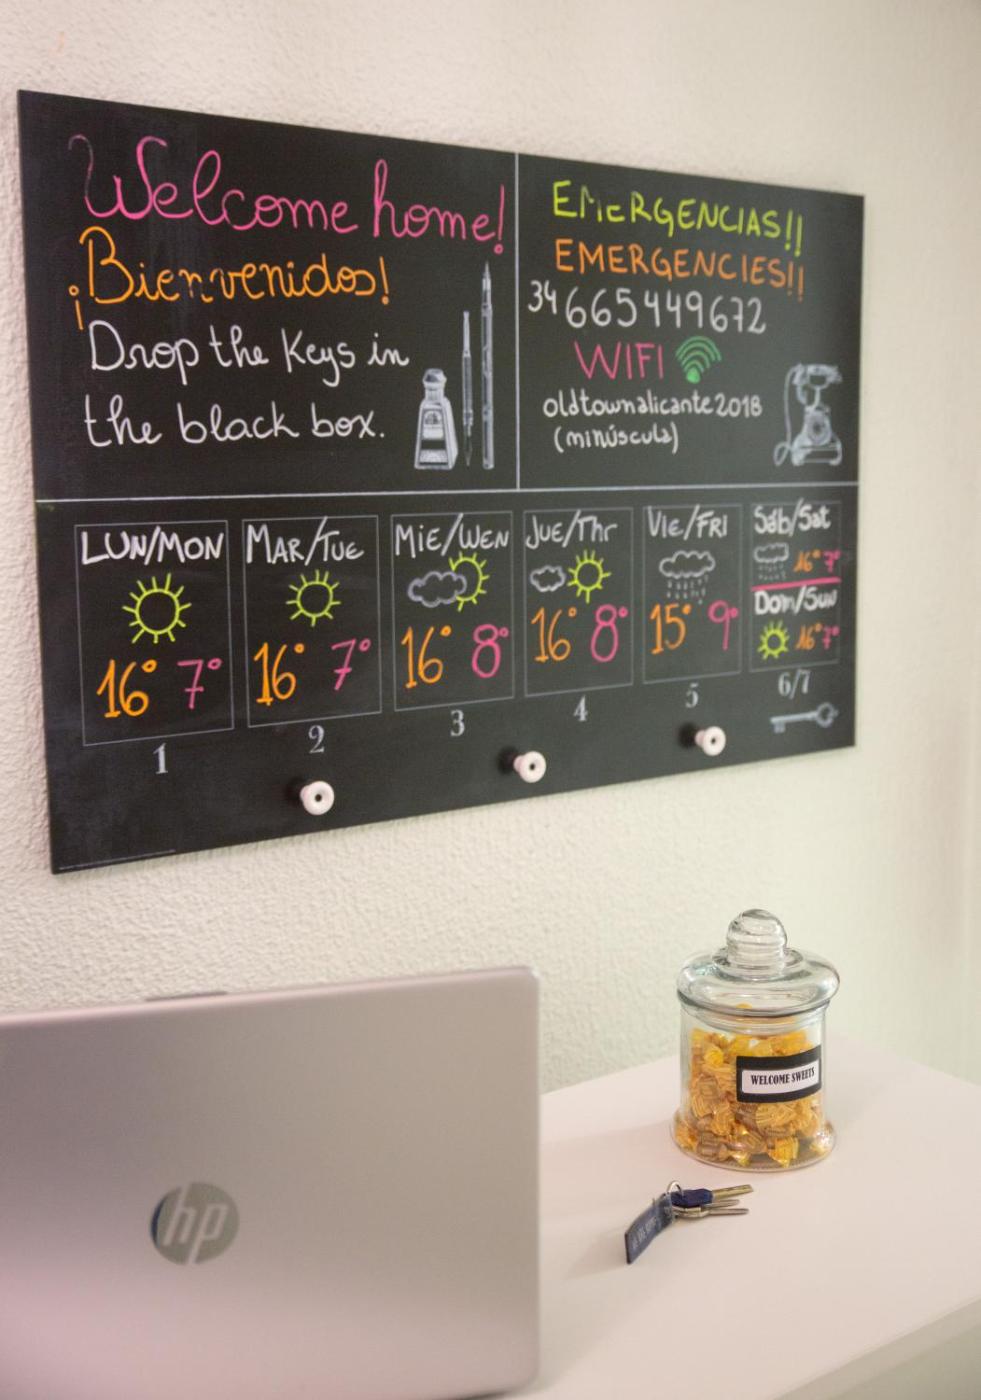 Welcome home!
¡Bienvenidos!
Drop the Keys in
the black box.
EMERGENCIAS!!
EMERGENCIES!!
34665449672
WIFI
oldtownalicante2018
(minúscula)
LUN/MON
16° 7°
1
MAR/TUE
16° 7°
2
MIE/WEN
16° 8°
3
JUE/Thr
16° 8°
4
VIE/FRI
15° 9°
5
Sáb/Sat
16° 7°
Dom/Sun
16° 7°
6/7
WELCOME SWEETS
hp